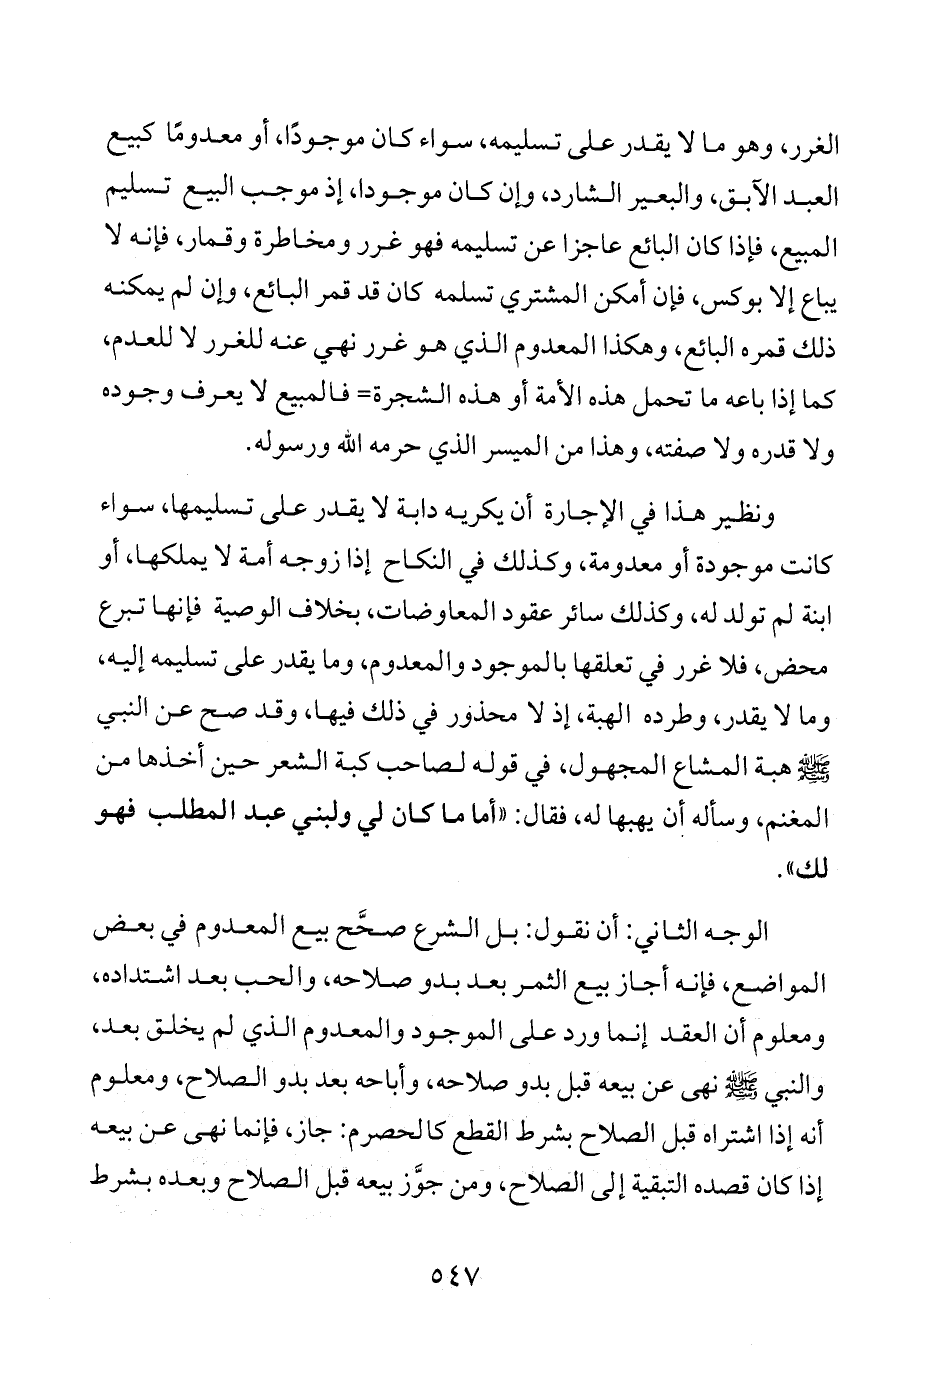 الغرر، وهو ما لا يقدر على تسليمه، سواء كان موجودًا، أو معدومًا كبيع
العبد الآبق، والبعير الشارد، وإن كان موجودا، إذ موجب البيع تسليم
المبيع، فإذا كان البائع عاجزا عن تسليمه فهو غرر ومخاطرة وقمار، فإنه لا
يباع إلا بوكس، فإن أمكن المشتري تسلمه كان قد قمر البائع، وإن لم يمكنه
ذلك قمره البائع، وهكذا المعدوم الذي هو غرر نهي عنه للغرر لا للعدم،
كما إذا باعه ما تحمل هذه الأمة أو هذه الشجرة= فالمبيع لا يعرف وجوده
ولا قدره ولا صفته، وهذا من الميسر الذي حرمه الله ورسوله.
ونظير هذا في الإجارة أن يكريه دابة لا يقدر على تسليمها، سواء
كانت موجودة أو معدومة، وكذلك في النكاح إذا زوجه أمة لا يملكها، أو
ابنة لم تولد له، وكذلك سائر عقود المعاوضات، بخلاف الوصية فإنها تبرع
محض، فلا غرر في تعلقها بالموجود والمعدوم، وما يقدر على تسليمه إليه،
وما لا يقدر، وطرده الهبة، إذ لا محذور في ذلك فيها، وقد صح عن النبي
ﷺ هبة المشاع المجهول، في قوله لصاحب كبة الشعر حين أخذها من
المغنم، وسأله أن يهبها له، فقال: «أما ما كان لي ولبني عبد المطلب فهو
لك».
الوجه الثاني: أن نقول: بل الشرع صحَّح بيع المعدوم في بعض
المواضع، فإنه أجاز بيع الثمر بعد بدو صلاحه، والحب بعد اشتداده،
ومعلوم أن العقد إنما ورد على الموجود والمعدوم الذي لم يخلق بعد،
والنبي ﷺ نهى عن بيعه قبل بدو صلاحه، وأباحه بعد بدو الصلاح، ومعلوم
أنه إذا اشتراه قبل الصلاح بشرط القطع كالحصرم: جاز، فإنما نهى عن بيعه
إذا كان قصده التبقية إلى الصلاح، ومن جوَّز بيعه قبل الصلاح وبعده بشرط
٥٤٧